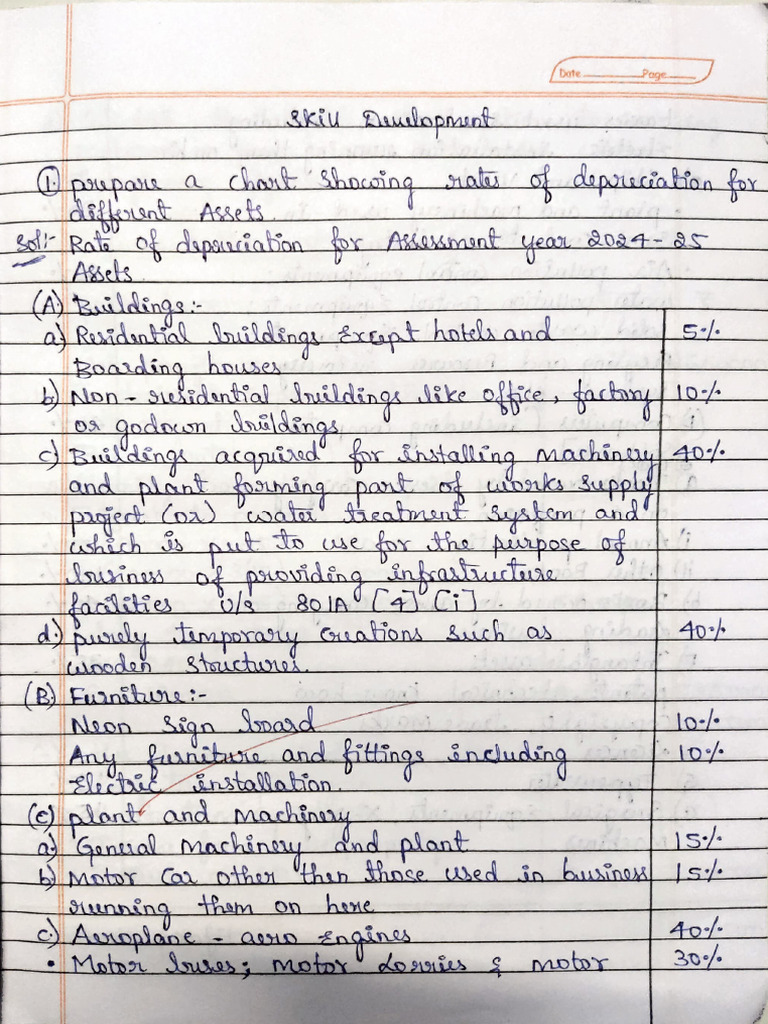 Date Page
Skill Development
1. prepare a chart showing rates of depreciation for
different Assets.
Sol:- Rate of depreciation for Assessment year 2024-25
Assets.
(A) Buildings:-
a) Residential buildings Except hotels and 5%
Boarding houses
b) Non-residential buildings like office, factory 10%
or godown buildings
c) Buildings acquired for installing Machinery 40%
and plant forming part of works supply
project (or) water treatment system and
which is put to use for the purpose of
business of providing infrastructure
facilities U/s 80IA [4] [i]
d.) purely temporary creations such as 40%
wooden structures.
(B) Furniture:-
Neon sign board 10%
Any furniture and fittings including 10%
Electric installation.
(C) plant and Machinery
a) General Machinery and plant 15%
b) Motor Car other then those used in business 15%
running them on here
c) Aeroplane - aero Engines 40%
• Motor buses; Motor Lorries & motor 30%